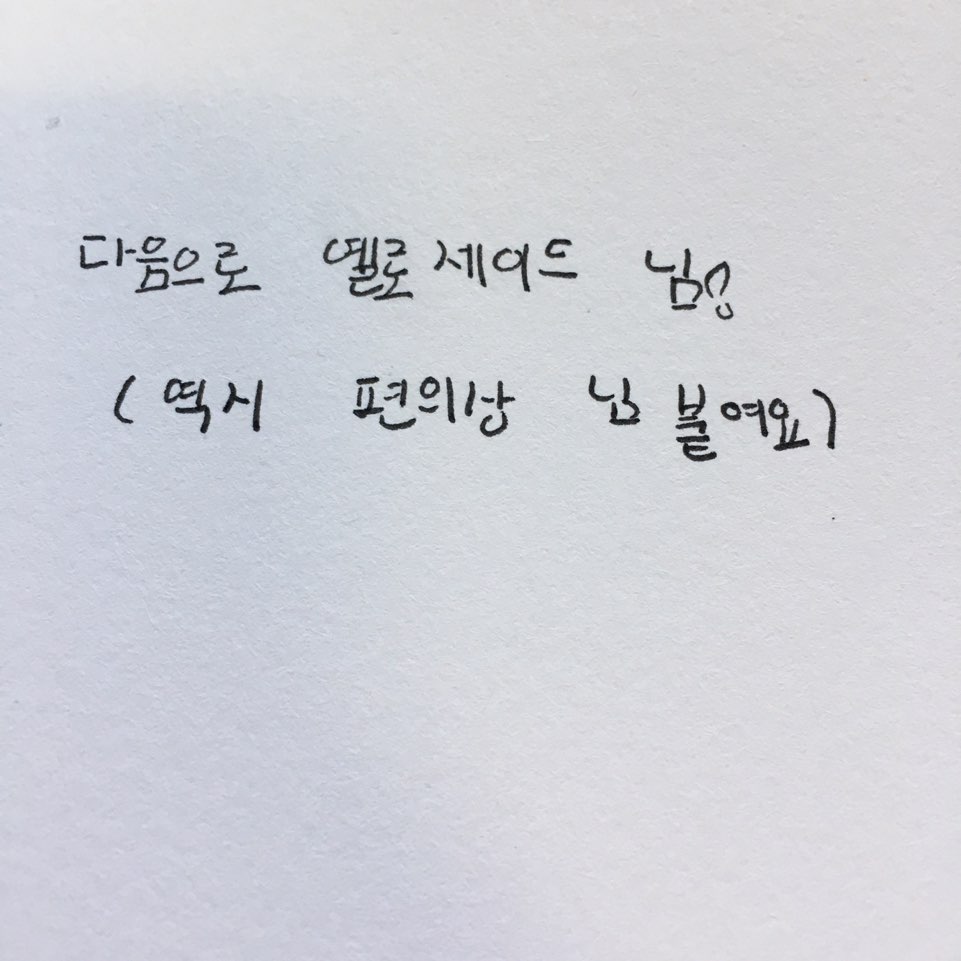 다음으로 옐로 세이드 님!
(역시 편의상 님 붙여요)